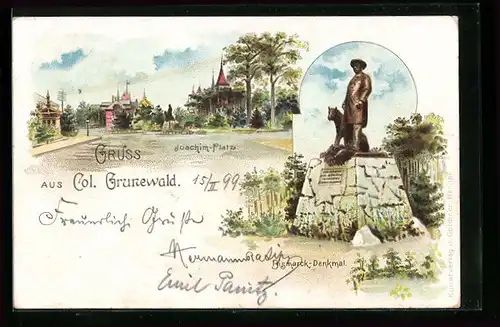 Joachim-Platz
GRUSS
AUS Col. Grunewald.
15/II 99
Freundlich. Grüße
Emil
Bismarck-Denkmal.
Kunstverlag